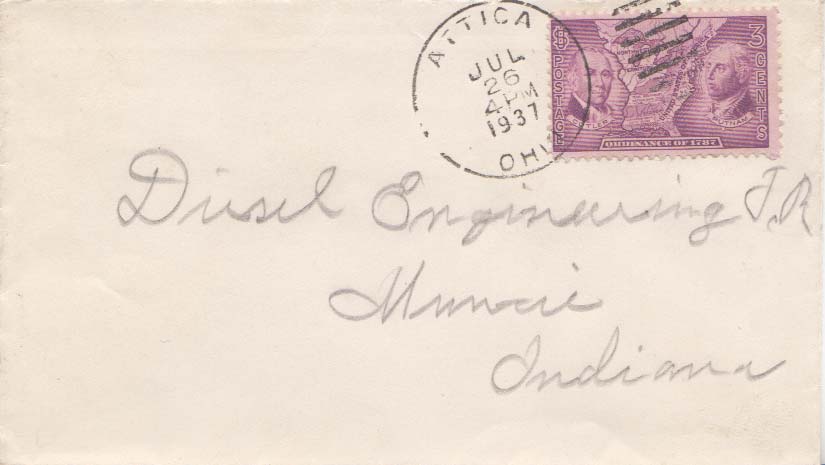 ATTICA
JUL
26
4PM
1937
OHIO
U.S. POSTAGE
3 CENTS
CUTLER
PUTNAM
ORDINANCE OF 1787
Diesel Engineering J.R.
Muncie
Indiana